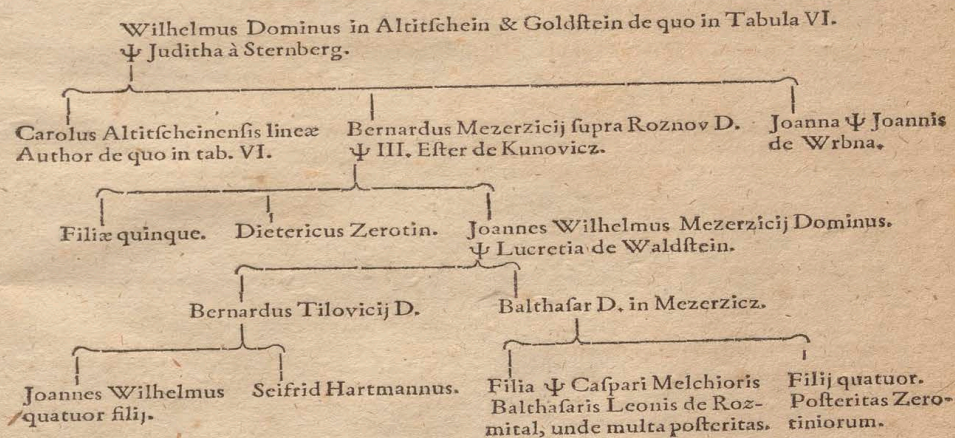 Wilhelmus Dominus in Altitſchein & Goldſtein de quo in Tabula VI.
Ψ Juditha à Sternberg.
Carolus Altitſcheinenſis lineæ
Author de quo in tab. VI.
Bernardus Mezerzicij ſupra Roznov D.
Ψ III. Eſter de Kunovicz.
Joanna Ψ Joannis
de Wrbna.
Filiæ quinque.
Dietericus Zerotin.
Joannes Wilhelmus Mezerzicij Dominus.
Ψ Lucretia de Waldſtein.
Bernardus Tilovicij D.
Balthaſar D. in Mezerzicz.
Joannes Wilhelmus
quatuor filij.
Seifrid Hartmannus.
Filia Ψ Caſpari Melchioris
Balthaſaris Leonis de Roz-
mital, unde multa poſteritas.
Filij quatuor.
Poſteritas Zero-
tiniorum.